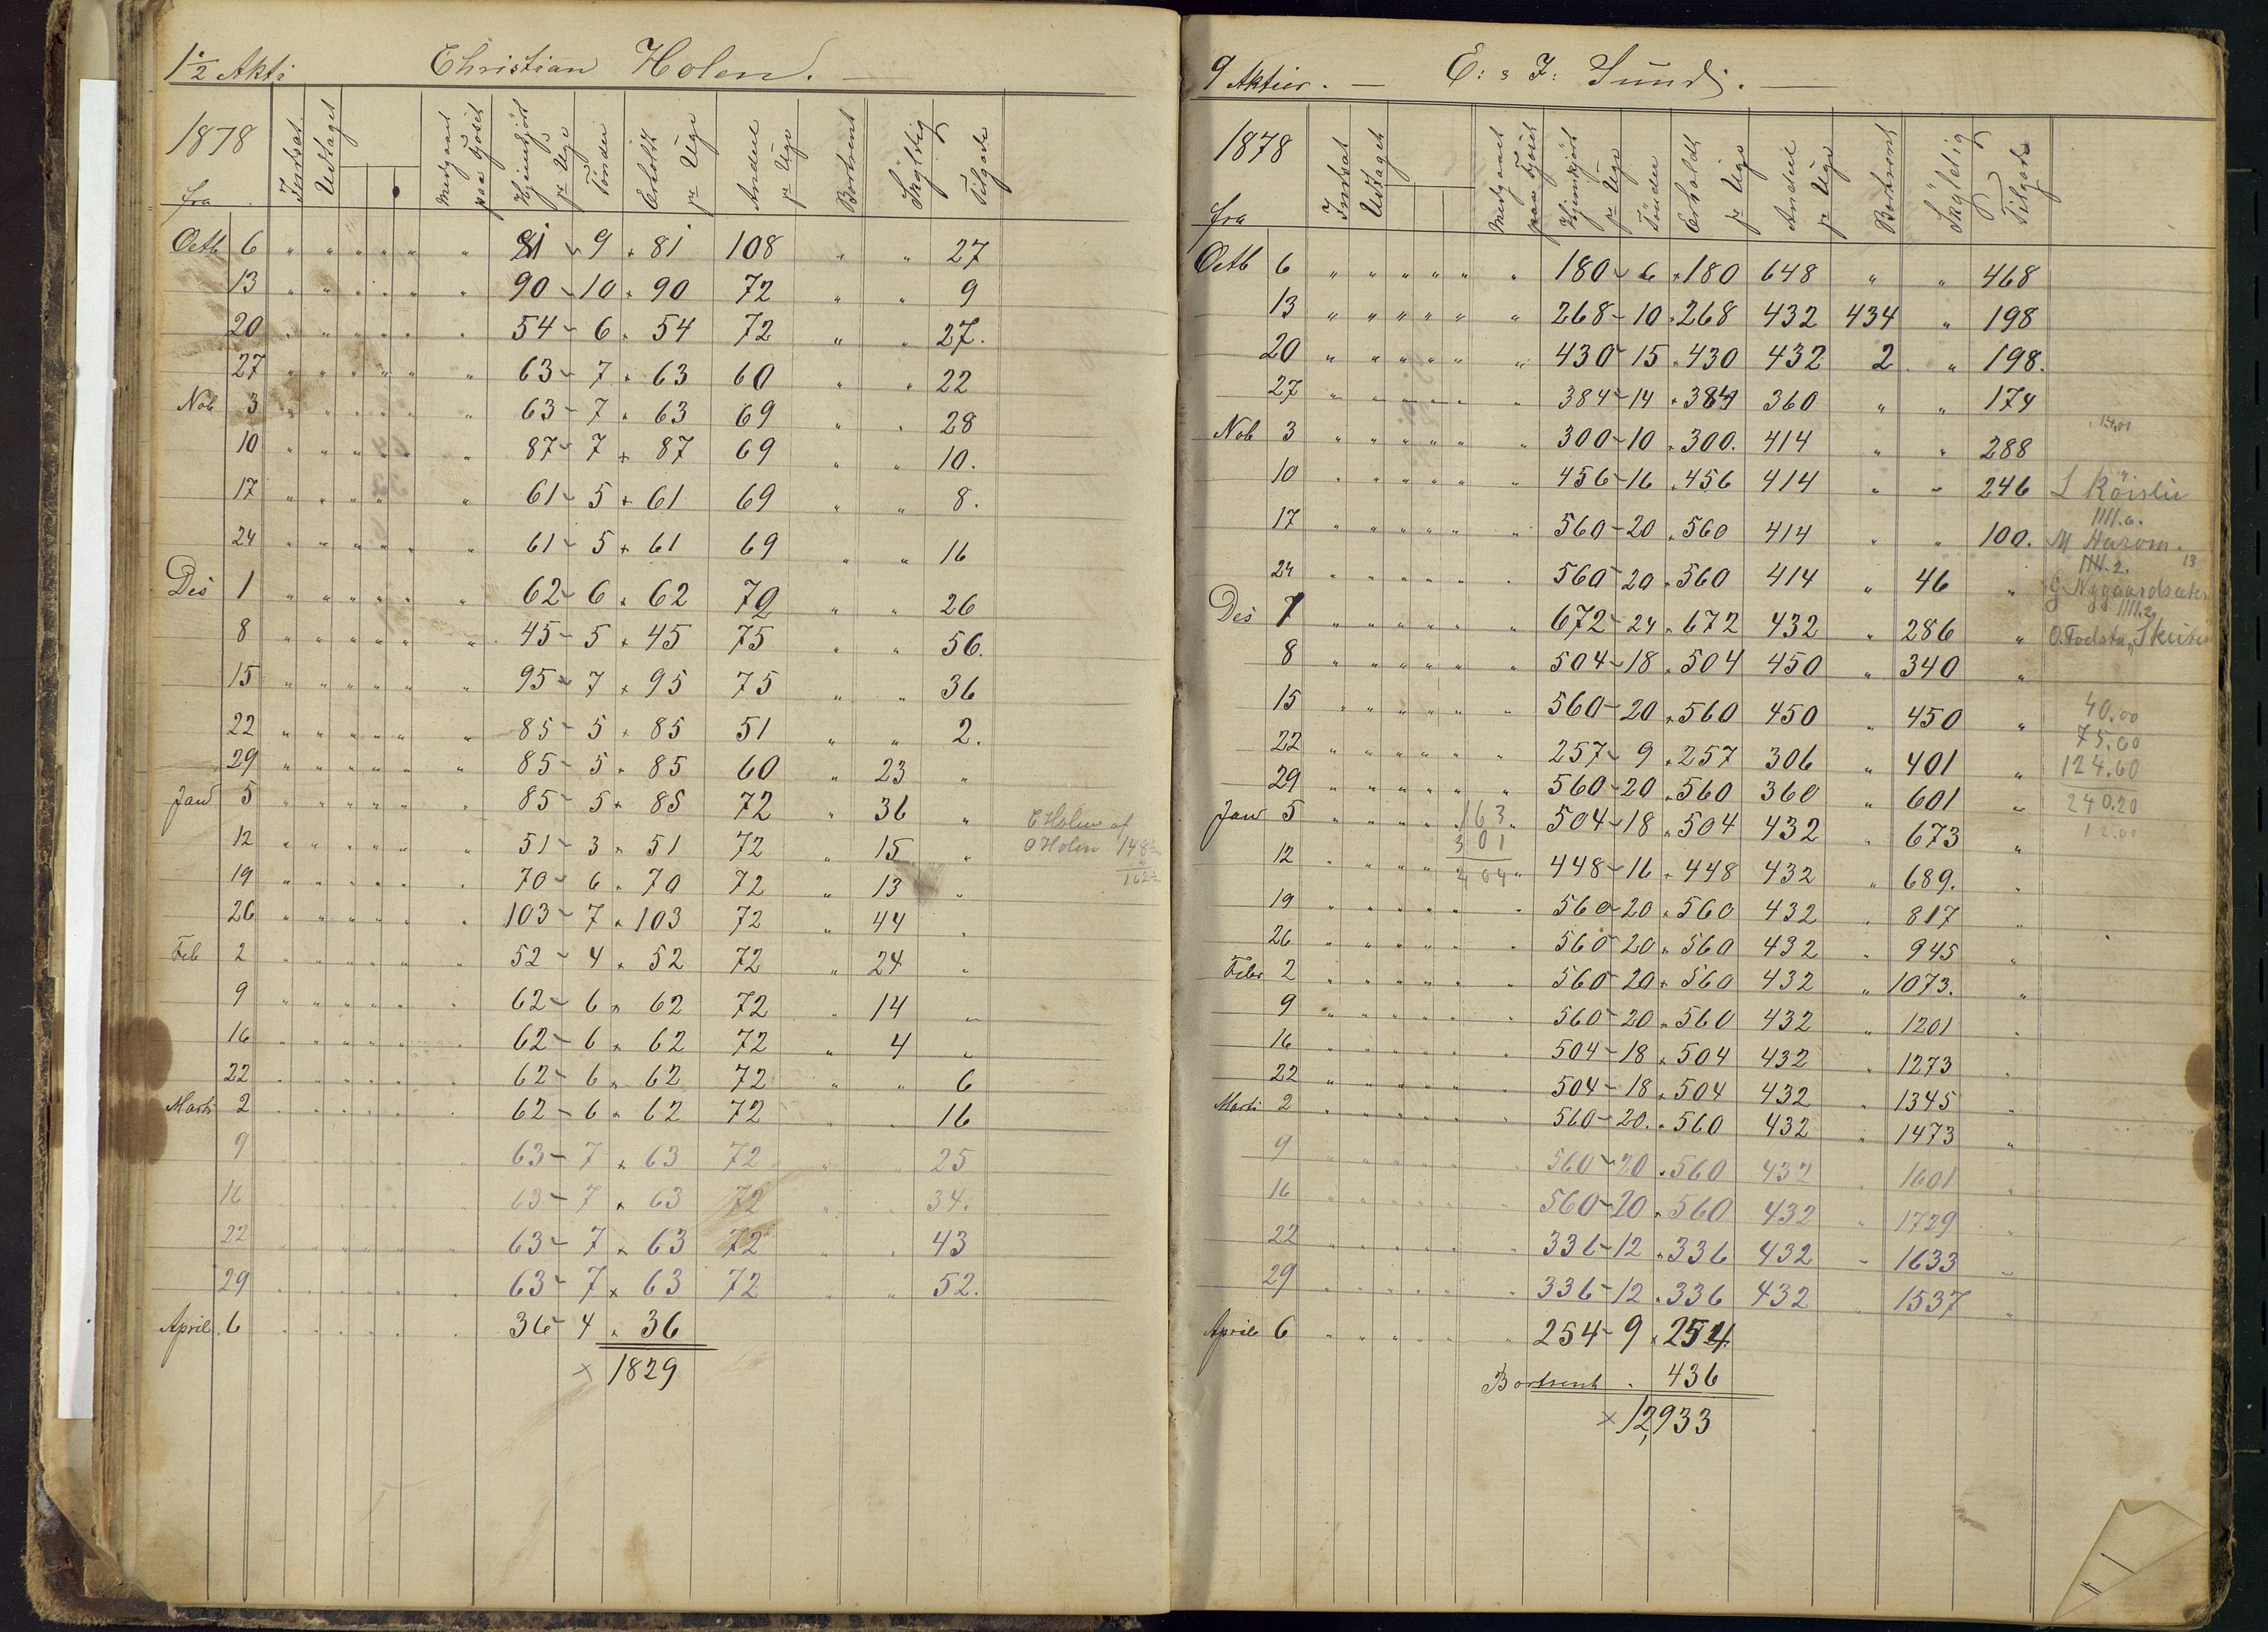 1 1/2 Akti Christian Holen. —
1878 fra Indsat Udtaget Medgaaet paa Fjöset Hjemkjört pr Uge Tönder Erholdt pr Uge Andel pr Uge Bortsent Skÿldig Tilgode
Octb 6 " " " " " " 81 - 9 " 81 108 " " 27
13 " " " " " " 90 - 10 " 90 72 " " 9
20 " " " " " " 54 - 6 " 54 72 " " 27.
27 " " " " " " 63 - 7 " 63 60 " " 22
Nob 3 " " " " " " 63 - 7 " 63 69 " " 28
10 " " " " " " 87 - 7 " 87 69 " " 10.
17 " " " " " " 61 - 5 " 61 69 " " 8.
24 " " " " " " 61 - 5 " 61 69 " " 16
Des 1 " " " " " " 62 - 6 " 62 72 " " 26
8 " " " " " " 45 - 5 " 45 75 " " 56.
15 " " " " " " 95 - 7 " 95 75 " " 36
22 " " " " " " 85 - 5 " 85 51 " " 2.
29 " " " " " " 85 - 5 " 85 60 " 23 "
Janu 5 " " " " " " 85 - 5 " 85 72 " 36 " E Holen af
12 " " " " " " 51 - 3 " 51 72 " 15 " O Holen 148
162
19 " " " " " " 70 - 6 " 70 72 " 13 "
26 " " " " " " 103 - 7 " 103 72 " 44 "
Feb 2 " " " " " " 52 - 4 " 52 72 " 24 "
9 " " " " " " 62 - 6 " 62 72 " 14 "
16 " " " " " " 62 - 6 " 62 72 " 4 "
22 " " " " " " 62 - 6 " 62 72 " " 6
Marts 2 " " " " " " 62 - 6 " 62 72 " " 16
9 " " " " " " 63 - 7 " 63 72 " " 25
16 " " " " " " 63 - 7 " 63 72 " " 34.
22 " " " " " " 63 - 7 " 63 72 " " 43
29 " " " " " " 63 - 7 " 63 72 " " 52.
April 6 " " " " " " 36 - 4 " 36
× 1829
9 Aktier. — E: & J: Sund. —
1878 fra Indsat Udtaget Medgaaet paa Fjöset Hjemkjört pr Uge Tönder Erholdt pr Uge Andel pr Uge Bortsent Skÿldig Tilgode
Octb 6 " " " " " " 180 - 6 " 180 648 " " 468
13 " " " " " " 268 - 10 " 268 432 434 " 198
20 " " " " " " 430 - 15 " 430 432 2 " 198.
27 " " " " " " 384 - 14 " 384 360 " " 174
Nob 3 " " " " " " 300 - 10 " 300. 414 " " 288
10 " " " " " " 456 - 16 " 456 414 " " 246 L Röislie
1111.6.
17 " " " " " " 560 - 20 " 560 414 " " 100. M Aarom.
1111.2. 13
24 " " " " " " 560 - 20 " 560 414 " 46 " G Nygaardsæter
1111.2
Des 1 " " " " " " 672 - 24 " 672 432 " 286 " O. Fodsta,
8 " " " " " " 504 - 18 " 504 450 " 340 "
15 " " " " " " 560 - 20 " 560 450 " 450 " 40.00
75.60
22 " " " " " " 257 - 9 " 257 306 " 401 " 124.60
29 " " " " " " 560 - 20 " 560 360 " 601 " 240.20
Janu 5 " " " " " 163 " 504 - 18 " 504 432 " 673 " 12.00
301
12 " " " " 464 " 448 - 16 " 448 432 " 689. "
19 " " " " " " 560 - 20 " 560 432 " 817 "
26 " " " " " " 560 - 20 " 560 432 " 945 "
Febr 2 " " " " " " 560 - 20 " 560 432 " 1073. "
9 " " " " " " 560 - 20 " 560 432 " 1201 "
16 " " " " " " 504 - 18 " 504 432 " 1273 "
22 " " " " " " 504 - 18 " 504 432 " 1345 "
Marts 2 " " " " " " 560 - 20. " 560 432 " 1473 "
9 " " " " " " 560 - 20 " 560 432 " 1601 "
16 " " " " " " 560 - 20 " 560 432 " 1729 "
22 " " " " " " 336 - 12 " 336 432 " 1633 "
29 " " " " " " 336 - 12 " 336 432 " 1537 "
April 6 " " " " " " 254 - 9 " 254
Bortsent . 436
× 12,933